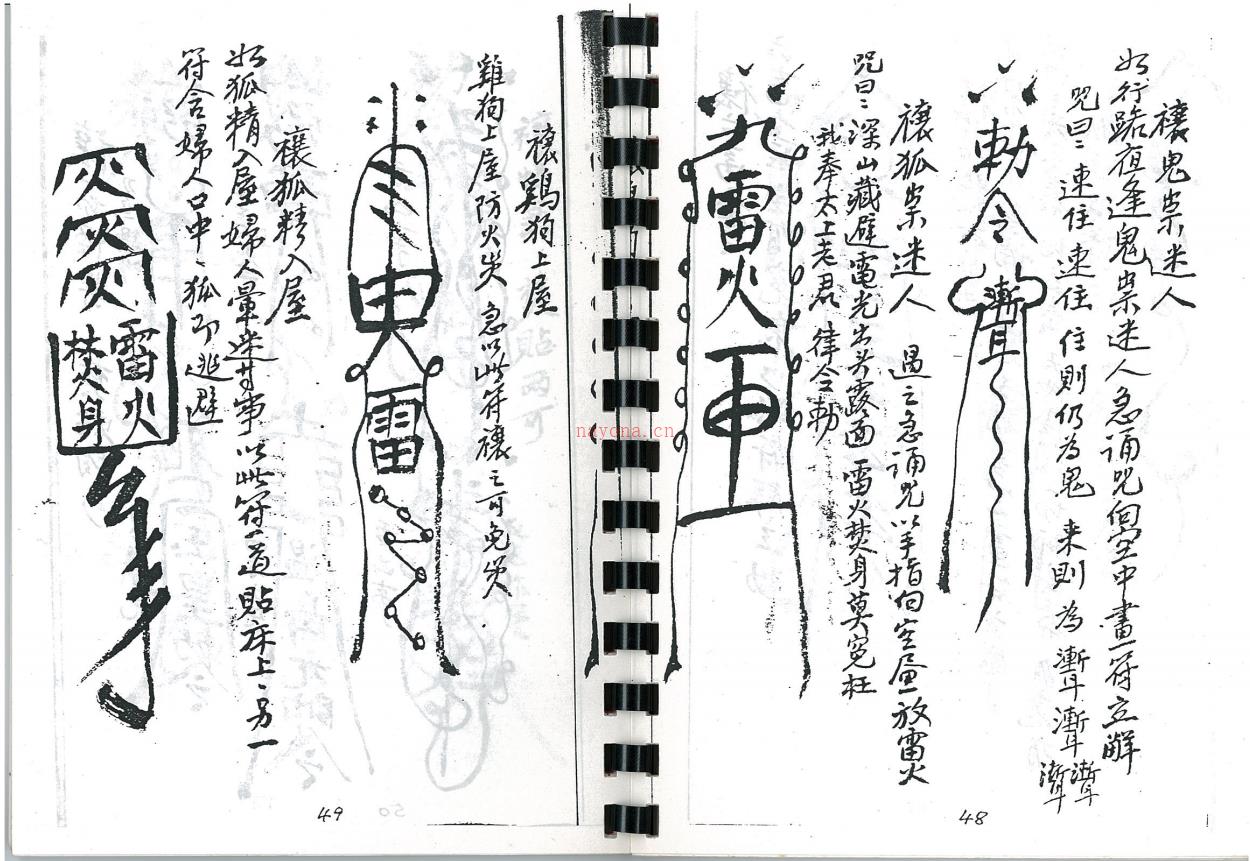 禳鬼祟迷人
如行路夜逢鬼祟迷人急誦咒向空中畫一符立解
咒曰：速住速住 住則仍为鬼 来則为漸耳漸耳漸耳漸耳
勅令漸耳
禳狐祟迷人 遇之急誦咒以手指向空虛放雷火
咒曰：深山藏避電光出头露面雷火焚身莫冤枉
我奉太上老君律令勅
九雷火
48
禳鷄狗上屋
雞狗上屋防火災 急以此符禳之可免災
雷
禳狐精入屋
如狐精入屋婦人暈迷等事以此符一道貼床上、另一
符含婦人口中、狐即逃避
灾
灾
灾
雷火
焚身
49
50
nayona.cn